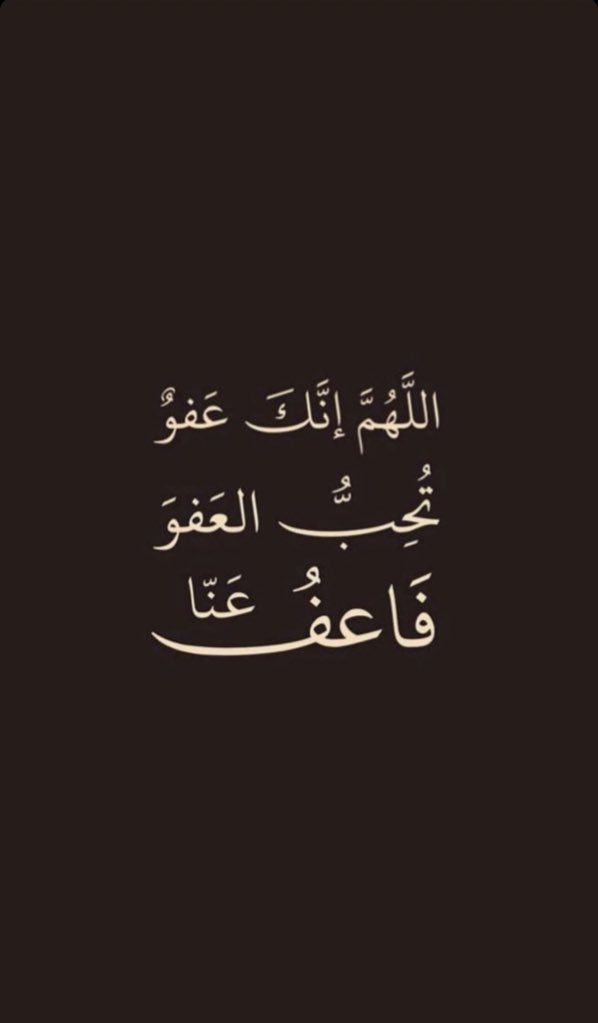 اللَّهُمَّ إنَّكَ عَفوٌ
تُحِبُّ العَفوَ
فَاعفُ عَنّا